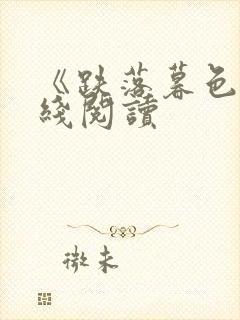 《跌落暮色
綫閱讀
微未